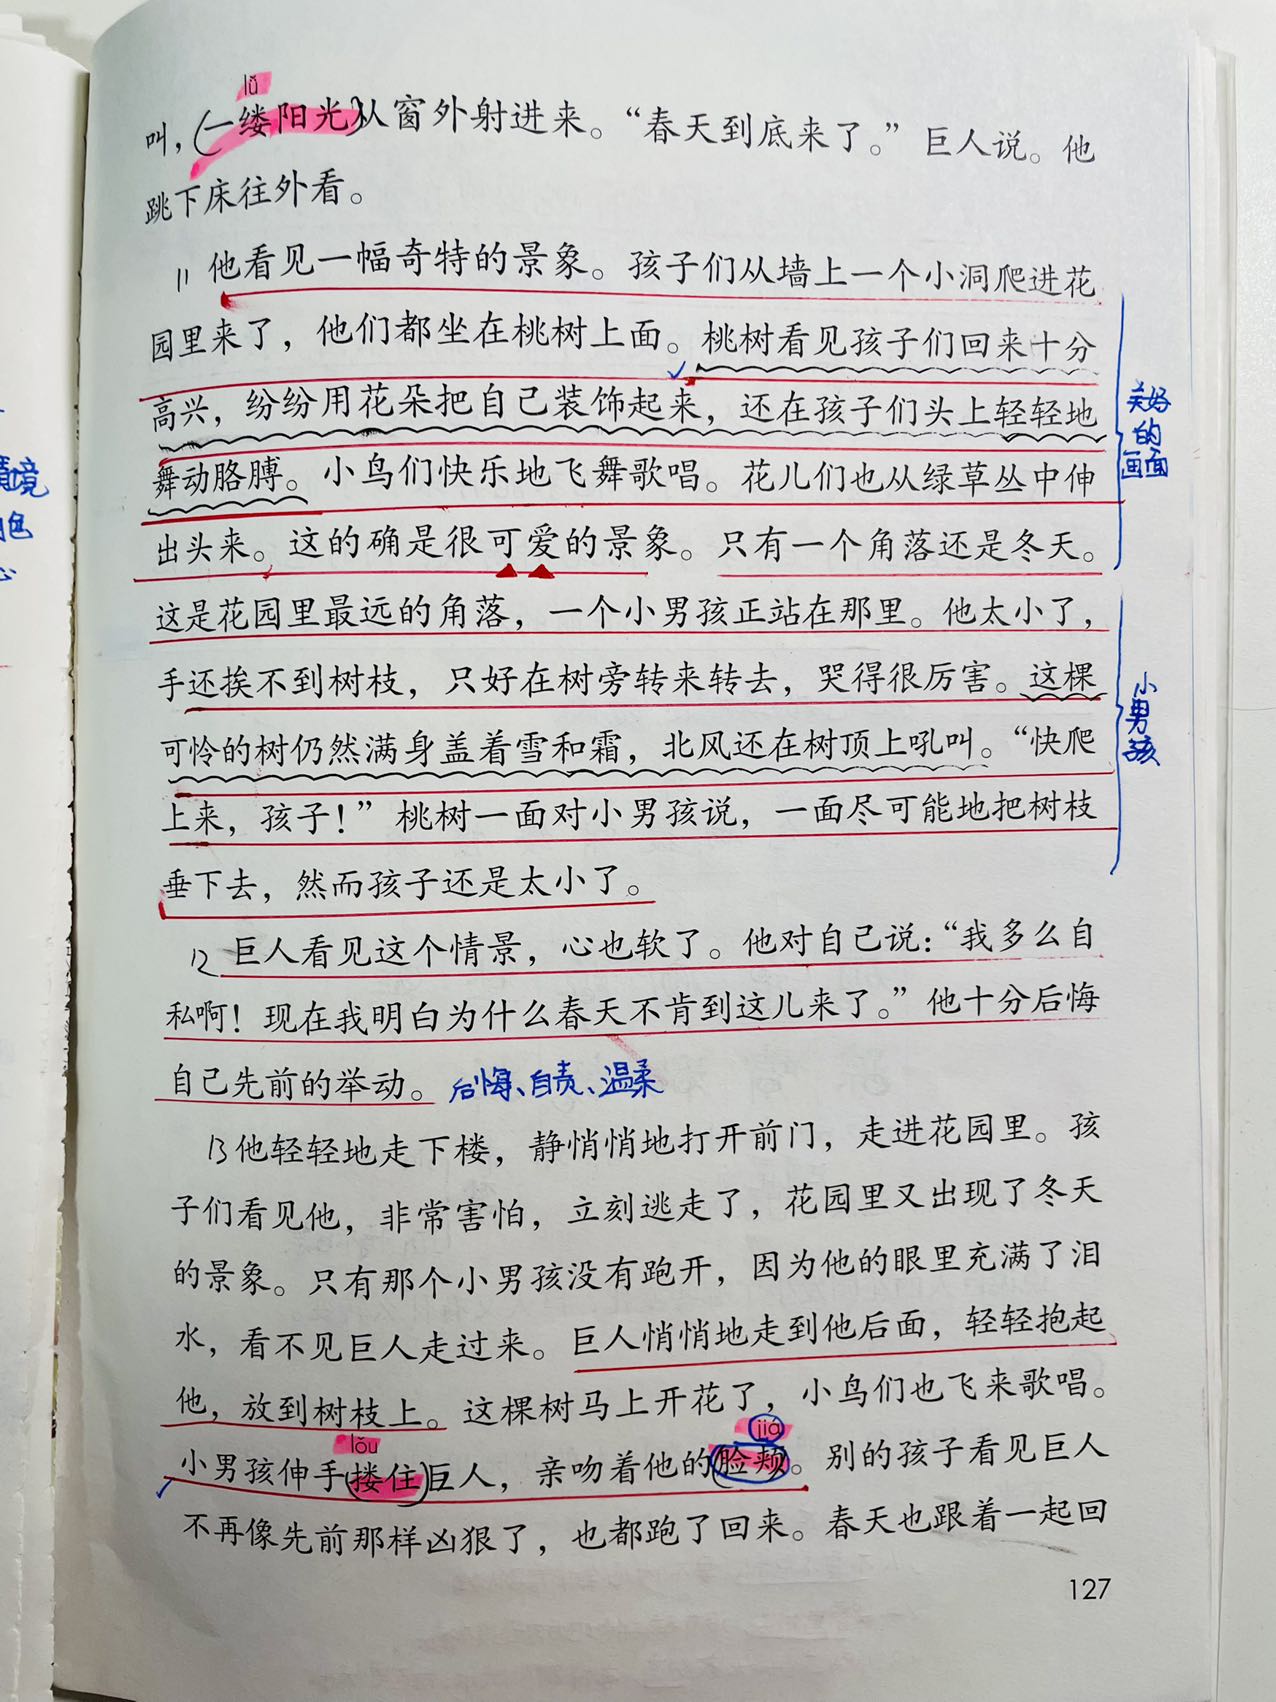 lǚ
叫，(一缕阳光)从窗外射进来。“春天到底来了。”巨人说。他
跳下床往外看。
11 他看见一幅奇特的景象。孩子们从墙上一个小洞爬进花
园里来了，他们都坐在桃树上面。桃树看见孩子们回来十分
高兴，纷纷用花朵把自己装饰起来，还在孩子们头上轻轻地
舞动胳膊。小鸟们快乐地飞舞歌唱。花儿们也从绿草丛中伸
出头来。这的确是很可爱的景象。只有一个角落还是冬天。
这是花园里最远的角落，一个小男孩正站在那里。他太小了，
手还挨不到树枝，只好在树旁转来转去，哭得很厉害。这棵
可怜的树仍然满身盖着雪和霜，北风还在树顶上吼叫。“快爬
上来，孩子！”桃树一面对小男孩说，一面尽可能地把树枝
垂下去，然而孩子还是太小了。
美好
的
画面
小
男
孩
12 巨人看见这个情景，心也软了。他对自己说：“我多么自
私啊！现在我明白为什么春天不肯到这儿来了。”他十分后悔
自己先前的举动。 后悔、自责、温柔
13 他轻轻地走下楼，静悄悄地打开前门，走进花园里。孩
子们看见他，非常害怕，立刻逃走了，花园里又出现了冬天
的景象。只有那个小男孩没有跑开，因为他的眼里充满了泪
水，看不见巨人走过来。巨人悄悄地走到他后面，轻轻抱起
他，放到树枝上。这棵树马上开花了，小鸟们也飞来歌唱。
lǒu jiá
小男孩伸手(搂住)巨人，亲吻着他的(脸颊)。别的孩子看见巨人
不再像先前那样凶狠了，也都跑了回来。春天也跟着一起回
127
境
心